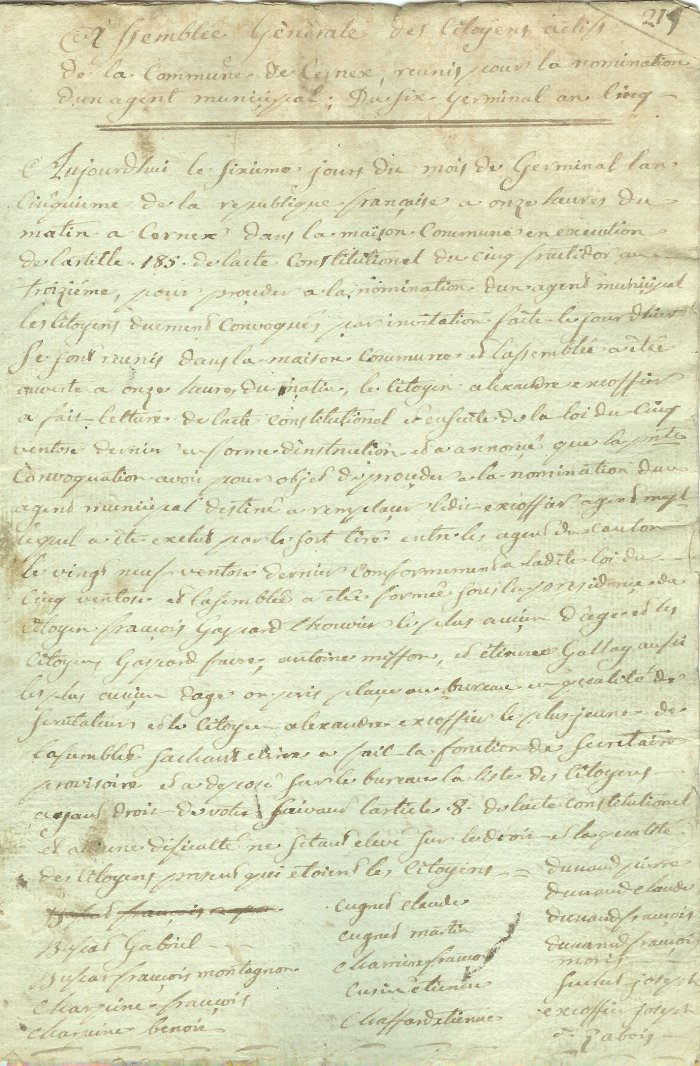 219
Assemblée Générale des Citoyens actifs
de la Commune de Cernex, reunis pour la nomination
dun agent municipal; Du six Germinal an Cinq
Aujourdhui le sixieme jours du mois de Germinal lan
Cinquieme de la republique française a onze heures du
matin a Cernex dans la maison Commune en execution
de lartille 185 de lacte Constitutionel du Cinq fructidor an
troizième, pour proçeder a la nomination dun agent municipal
les Citoyens duement Convoqués par invitation faite le jour dhier
Se sont reunis dans la maison Commune et lassemblée a étée
ouverte a onze heures du matin, le Citoyen alexandre excoffier
a fait lecture de lacte constitutionel et ensuite de la loi du Cinq
ventose dernier en forme dinstruction et a annoncé que la pnte
Convoquation avoit pour objet de proçeder a la nomination dun
agent municipal destiné a remplacer ledit excoffier agent mpl
lequel a été exclus par le sort tiré entre les agens du Canton
le vingt neuf ventose dernier Conformement a ladite loi du
Cinq ventose et lasemblée a étée formée sous la presidençe du
Citoyen françois Gaspard thouvier le plus ancien d'age et les
Citoyens Gaspard favre, antoine misson, et étienne Gallay aussi
les plus ancien dage on pris plaçe au bureau en qualité de
Scrutateurs et le Citoyen alexandre excoffier le plus jeune de
Lasemblée sachant écrire a fait la fonction de Secretaire
provisoire et a deposé sur le bureau la liste des Citoyens
ayant droit de voter suivant larticle 8 de lacte Constitutionel
et aucune dificulté ne sétant elevé sur le droit et la qualité
des Citoyens present qui étoient les Citoyens =
françois
Buscat Gabriel
Buscat françois montagnon
Charriere françois
Charriere benoit
cugnet Claude
cugnet martin
Charriere françois
Cusin étienne
Chaffard étienne
dunand pierre
dunand Claude
dunand françois
dunand françois
moris
joseph
excoffier joseph